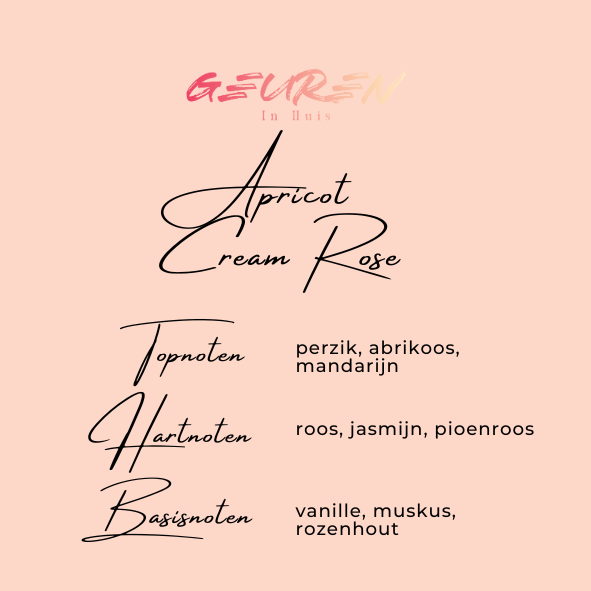 GEUREN
In Huis
Apricot
Cream Rose
Topnoten
perzik, abrikoos,
mandarijn
Hartnoten
roos, jasmijn, pioenroos
Basisnoten
vanille, muskus,
rozenhout